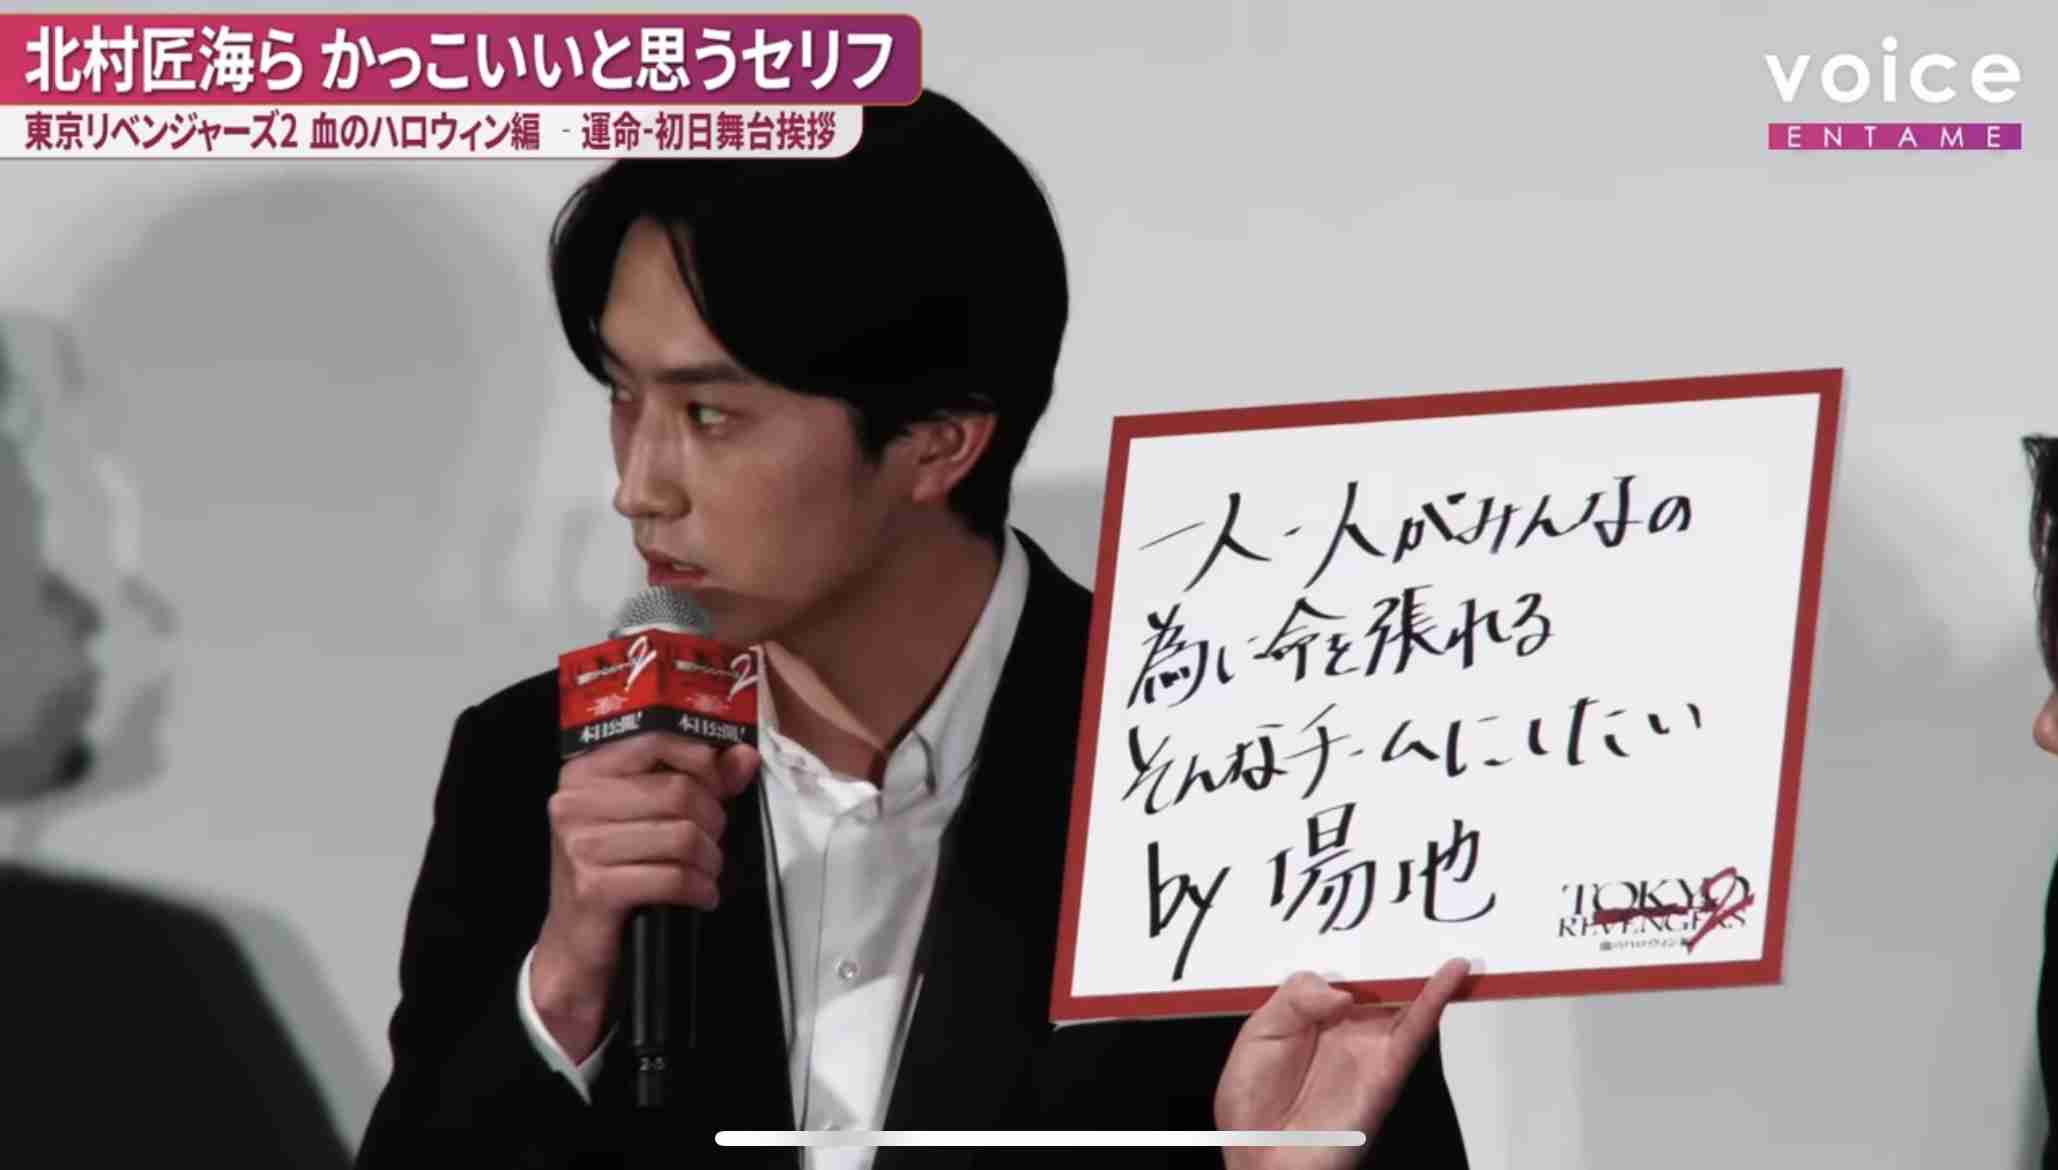 北村匠海ら かっこいいと思うセリフ
東京リベンジャーズ2 血のハロウィン編 - 運命-初日舞台挨拶
voice
ENTAME
一人一人がみんなの
為に命を張れる
そんなチームにしたい
by 場地
TOKYO
REVENGERS 2
血のハロウィン編
本日公開!
本日公開!
2-5